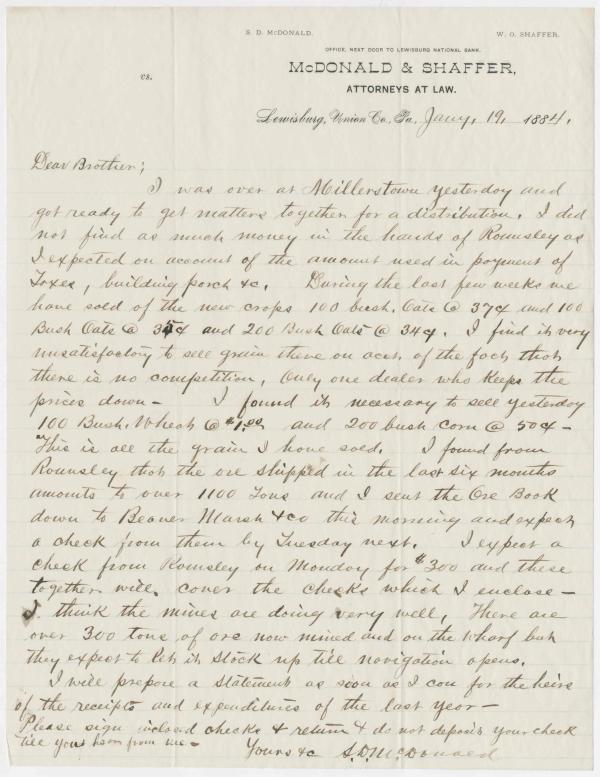 S. D. McDONALD. W. O. SHAFFER.
OFFICE, NEXT DOOR TO LEWISBURG NATIONAL BANK.
McDONALD & SHAFFER,
vs.
ATTORNEYS AT LAW.
Lewisburg, Union Co., Pa., Jany, 19, 1884.
Dear Brother;
I was over at Millerstown yesterday and
got ready to get matters together for a distribution. I did
not find as much money in the hands of Rounsley as
I expected on account of the amount used in payment of
Taxes, building porch &c. During the last few weeks we
have sold of the new crops 100 bush. Oats @ 37¢ and 100
Bush Oats @ 35¢ and 200 Bush Oats @ 34¢. I find it very
unsatisfactory to sell grain there on acct. of the fact that
there is no competition, Only one dealer who keeps the
prices down - I found it necessary to sell yesterday
100 Bush. Wheat @ $1.00 and 200 bush corn @ 50¢ -
This is all the grain I have sold. I found from
Rounsley that the ore shipped in the last six months
amounts to over 1100 Tons and I sent the Ore Book
down to Beaver Marsh & co this morning and expect
a check from them by Tuesday next. I expect a
check from Romsley on Monday for $300 and these
together will cover the checks which I enclose -
I think the mines are doing very well, There are
over 300 tons of ore now mined and on the wharf but
they expect to let it stock up till navigation opens.
I will prepare a statement as soon as I can for the heirs
of the receipts and expenditures of the last year -
Please sign inclosed checks & return & do not deposit your check
till you hear from me -
Yours &c S.D. McDonald